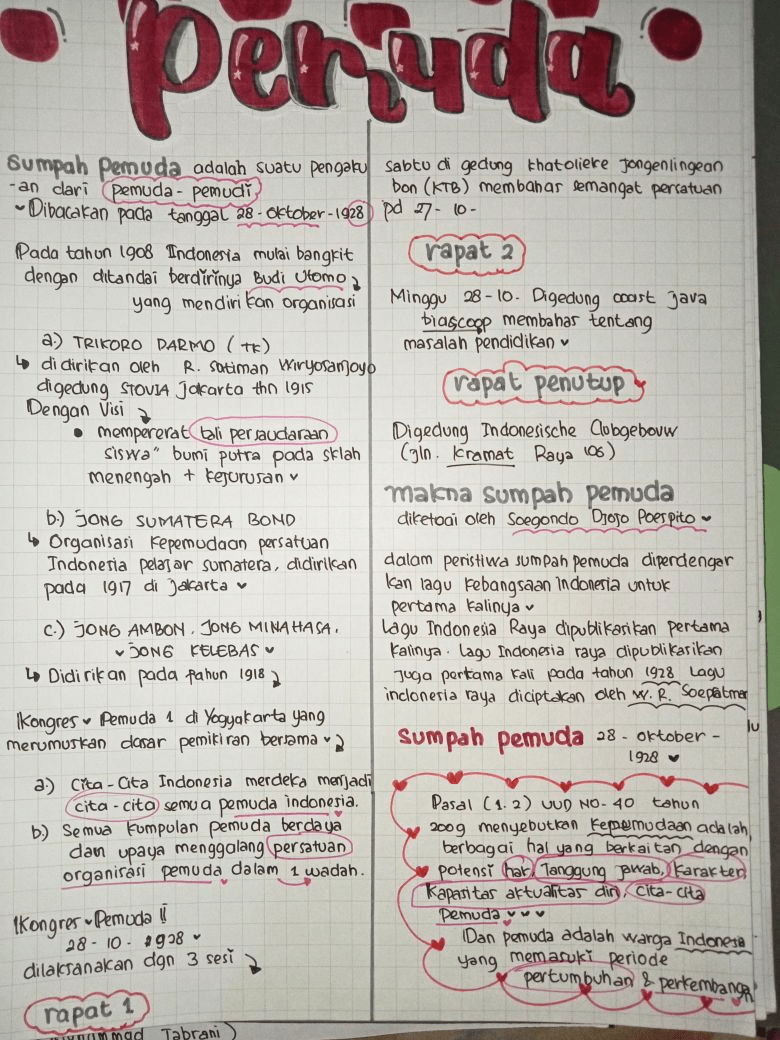 Pemuda
Sumpah Pemuda adalah suatu pengaku
-an dari pemuda-pemudi
~ Dibacakan pada tanggal 28-Oktober-1928
Pada tahun 1908 Indonesia mulai bangkit
dengan ditandai berdirinya Budi Utomo
yang mendirikan organisasi
a.) TRIKORO DARMO (TK)
↳ didirikan oleh R. Satiman Wiryosanjoyo
digedung STOVIA Jakarta thn 1915
Dengan Visi
• mempererat tali persaudaraan
siswa" bumi putra pada sklah
menengah + kejurusan
b.) JONG SUMATERA BOND
↳ Organisasi Kepemudaan persatuan
Indonesia pelajar sumatera, didirikan
pada 1917 di Jakarta
c.) JONG AMBON, JONG MINAHASA,
JONG KELEBAS
↳ Didirikan pada tahun 1918
Kongres Pemuda 1 di Yogyakarta yang
merumuskan dasar pemikiran bersama
a) Cita-Cita Indonesia merdeka menjadi
cita-cita semua pemuda indonesia.
b) Semua kumpulan pemuda berdaya
dan upaya menggalang persatuan
organisasi pemuda dalam 1 wadah.
Kongres Pemuda II
28-10-1928
dilaksanakan dgn 3 sesi
rapat 1
Tabrani)
sabtu di gedung khatolieke Jongenlingean
bon (KTB) membahas semangat persatuan
pd 27-10-
rapat 2
Minggu 28-10. Digedung oost java
biascoop membahas tentang
masalah pendidikan
rapat penutup
Digedung Indonesische Clubgebouw
(jln. Kramat Raya 106)
makna sumpah pemuda
diketuai oleh Soegondo Djojo Poespito
dalam peristiwa sumpah pemuda diperdengar
kan lagu kebangsaan Indonesia untuk
pertama kalinya
Lagu Indonesia Raya dipublikasikan pertama
kalinya. lagu Indonesia raya dipublikasikan
Juga pertama kali pada tahun 1928 Lagu
indonesia raya diciptakan oleh W. R. Soepatman
sumpah pemuda 28-oktober-
1928
Pasal (1.2) UUD NO-40 tahun
2009 menyebutkan Kepemudaan adalah
berbagai hal yang berkaitan dengan
potensi hak, Tanggung jawab, Karakter,
Kapasitas aktualitas diri, cita-cita
Pemuda
Dan pemuda adalah warga Indonesia
yang memasuki periode
pertumbuhan & perkembangan